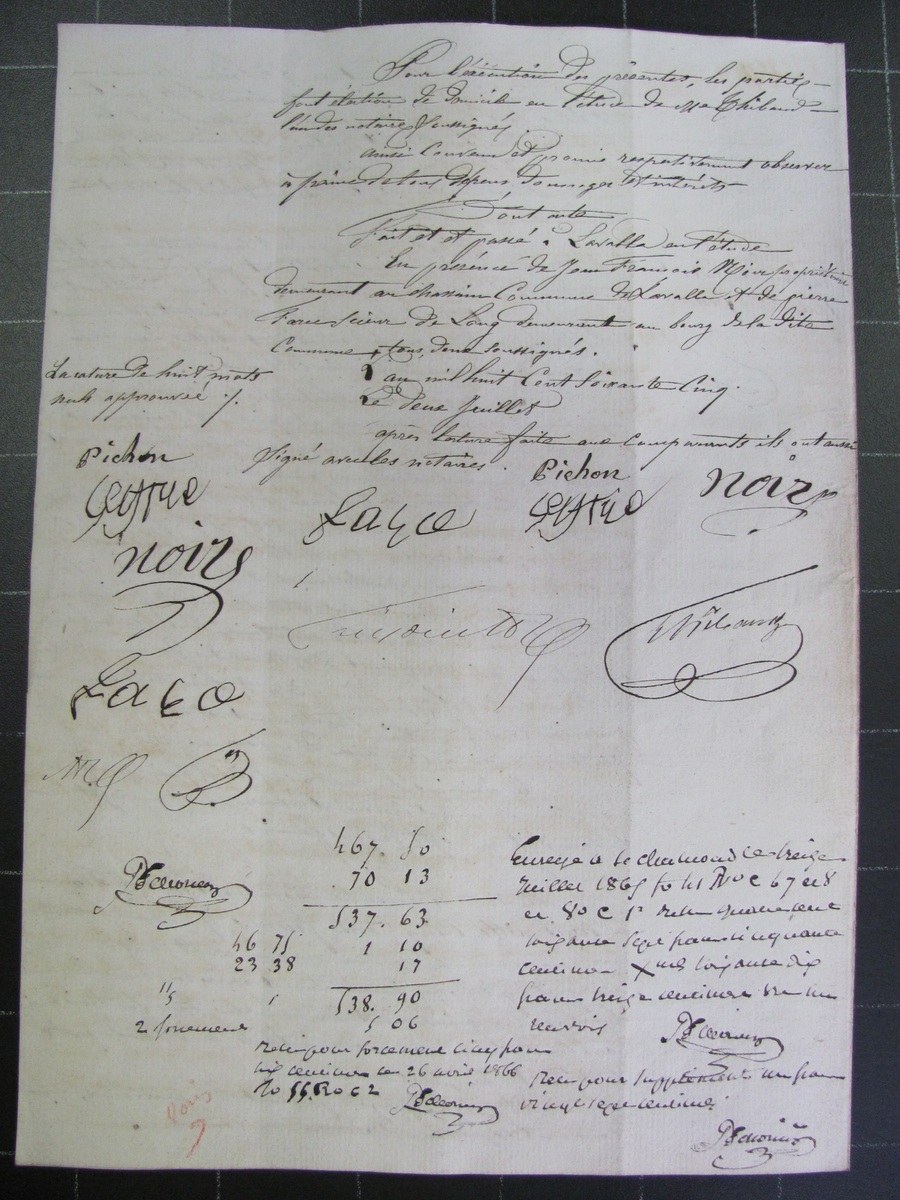 Pour l'exécution des présentes, les parties
font élection de domicile en l'étude de Me Thibaud
l'un des notaires soussignés.
ainsi convenu et promis respectivement observer
à peine de tous dépens dommages et intérêts
Dont acte
Fait et passé à Lavalla en l'étude
En présence de Jean François propriétaire
demeurant au chassain Commune de Lavalla et de pierre
Scieur de Long demeurant au bourg de la dite
Commune, tous deux soussignés.
La rature de huit mots
nuls approuvée
L'an mil huit Cent Soixante Cinq.
Le deux Juillet
après lecture faite aux Comparants ils ont aussi
Signé avec les notaires.
Pichon
Pichon
noir
noir
Thibaud
467. 50
70 13
537. 63
46 75
1 10
23 38
17
538. 90
5 06
2 forcement
Enregé à St chamond le treize
Juillet 1865 fo 41 Ro C 67 et 8
et 80 C 1r quatre cent
soixante sept francs cinquante
centimes soixante dix
francs treize centimes
renvois
Reçu pour forcement cinq francs
six centimes le 26 avril 1866
Reçu pour supplément un franc
vingt sept centimes